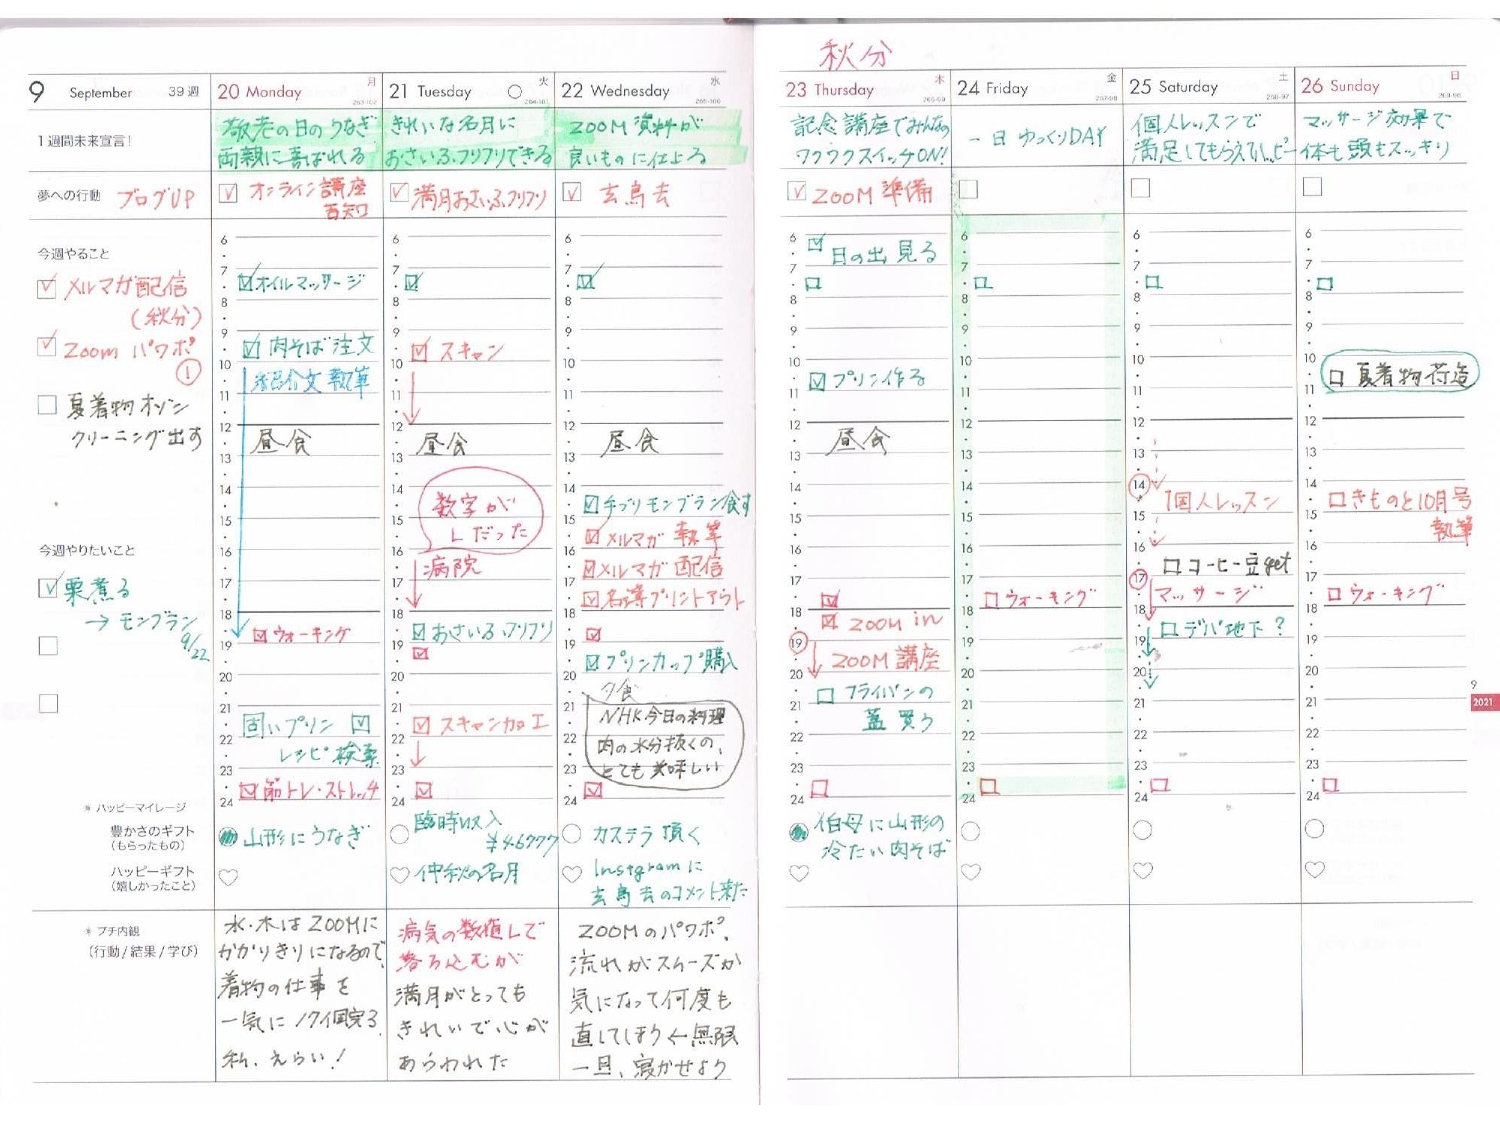 秋分
9 September 39週
1週間未来宣言!
夢への行動 ブログUP
今週やること
メルマガ配信
(秋分)
Zoom パワポ
①
夏着物オゾン
クリーニング出す
今週やりたいこと
栗煮る
→ モンブラン
9/22
* ハッピーマイレージ
豊かさのギフト
(もらったもの)
ハッピーギフト
(嬉しかったこと)
* プチ内観
(行動/結果/学び)
20 Monday 月
敬老の日のうなぎ
両親に喜ばれる
オンライン講座
告知
6
7 オイルマッサージ
8
9 肉そば注文
10 紹介文執筆
11
12 昼食
13
14
15
16
17
18 ウォーキング
19
20
21 固いプリン
22 レシピ検索
23 筋トレ・ストレッチ
24
山形にうなぎ
水・木はZOOMに
かかりきりになるので、
着物の仕事を
一気に17個完了。
私、えらい!
21 Tuesday 火
きれいな名月に
おさいふフリフリできる
満月おさいふフリフリ
6
7
8
9 スキャン
10
11
12 昼食
13
14 数字が
15 Lだった
16 病院
17
18 おさいふフリフリ
19
20
21 スキャン加工
22
23
24
臨時収入
¥46777
仲秋の名月
病気の数値Lで
落ち込むが
満月がとっても
きれいで心が
あらわれた
22 Wednesday 水
ZOOM資料が
良いものに仕上る
玄鳥去
6
7
8
9
10
11
12 昼食
13
14 手づくりモンブラン食す
15 メルマガ 執筆
16 メルマガ 配信
17 名簿プリントアウト
18
19 プリンカップ購入
20 夕食
21 NHK今日の料理
22 肉の水分抜くの、
23 とても美味しい
24
カステラ 頂く
Instgramに
玄鳥去のコメント来た
ZOOMのパワポ、
流れがスムーズか
気になって何度も
直してしまう←無限
一旦、寝かせよう
23 Thursday 木
記念講座でみんなの
ワクワクスイッチON!
ZOOM 準備
6 日の出 見る
7
8
9
10 プリン作る
11
12 昼食
13
14
15
16
17
18 ZOOM in
19 ZOOM 講座
20 フライパンの
21 蓋 買う
22
23
24
伯母に山形の
冷たい肉そば
24 Friday 金
一日 ゆっくりDAY
6
7
8
9
10
11
12
13
14
15
16
17 ウォーキング
18
19
20
21
22
23
24
25 Saturday 土
個人レッスンで
満足してもらえてハッピー
6
7
8
9
10
11
12
13
14 個人レッスン
15
16 コーヒー豆get
17 マッサージ
18 デパ地下?
19
20
21
22
23
24
26 Sunday 日
マッサージ効果で
体も頭もスッキリ
6
7
8
9
10 夏着物荷造
11
12
13
14 きものと10月号
15 執筆
16
17 ウォーキング
18
19
20
21
22
23
24
9
2021